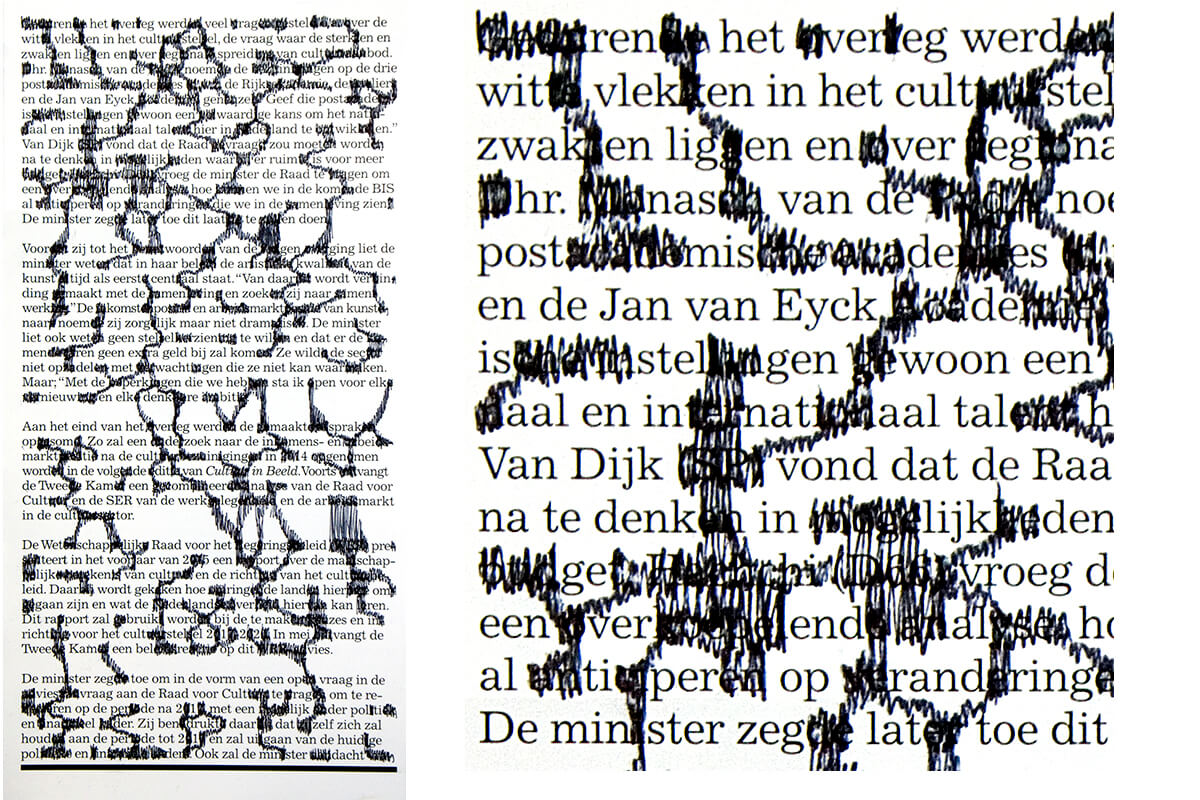 het overleg werden veel over de
witte vlekken in het cultuurstelsel, de vraag waar de sterkten en
zwakten liggen en over regionale spreiding van cultuuraanbod.
Dhr. Monasch van de PvdA noemde de bezuinigingen op de drie
postacademische academies de
en de Jan van Eyck Academie Geef die postacade-
ische instellingen gewoon een volwaardige kans om het natio-
naal en internationaal talent hier in Nederland te ontwikkelen.”
Van Dijk (SP) vond dat de Raad gevraagd zou moeten worden
na te denken in mogelijkheden waar er ruimte is voor meer
budget. (D66) vroeg de minister de Raad te vragen om
een overkoepelende analyse: hoe kunnen we in de komende BIS
al anticiperen op veranderingen die we in de samenleving zien?
De minister zegde later toe dit laatste te zullen doen.
Voordat zij tot het beantwoorden van de vragen overging liet de
minister weten dat in haar beleid de artistieke kwaliteit van de
kunst altijd als eerste centraal staat. “Van daaruit wordt verbin-
ding gemaakt met de samenleving en zoeken zij naar samen-
werking.” De inkomstenpositie en arbeidsmarktpositie van kunste-
naars noemde zij zorgelijk maar niet dramatisch. De minister
liet ook weten geen stelselherziening te willen en dat er de ko-
mende jaren geen extra geld bij zal komen. Ze wilde de sector
niet opzadelen met verwachtingen die ze niet kan waarmaken.
Maar; “Met de beperkingen die we hebben sta ik open voor elke
vernieuwing en elke denkbare ambitie.”
Aan het eind van het overleg werden de gemaakte afspraken
opgesomd. Zo zal een onderzoek naar de inkomens- en arbeids-
marktpositie na de cultuurbezuinigingen in 2014 opgenomen
worden in de volgende editie van Cultuur in Beeld. Voorts ontvangt
de Tweede Kamer een gecombineerde analyse van de Raad voor
Cultuur en de SER van de werkgelegenheid en de arbeidsmarkt
in de cultuursector.
De Wetenschappelijke Raad voor het Regeringsbeleid (WRR) pre-
senteert in het voorjaar van 2015 een rapport over de maatschap-
pelijke betekenis van cultuur en de richting van het cultuurbe-
leid. Daarin wordt gekeken hoe omringende landen hiermee om-
gegaan zijn en wat de Nederlandse overheid hiervan kan leren.
Dit rapport zal gebruikt worden bij de te maken keuzes en in-
richting voor het cultuurstelsel 2017-2020. In mei ontvangt de
Tweede Kamer een beleidsreactie op dit WRR-advies.
De minister zegde toe om in de vorm van een open vraag in de
adviesaanvraag aan de Raad voor Cultuur te vragen om te re-
flecteren op de periode na 2017, met een mogelijk ander politiek
en financieel kader. Zij benadrukte daarbij dat zij zelf zich zal
houden aan de periode tot 2017 en zal uitgaan van de huidige
politieke en financiële kaders. Ook zal de minister aandacht
Gedurende het overleg werden
witte vlekken in het cultuurstel
zwakten liggen en over regiona
Dhr. Monasch van de PvdA noe
postacademische academies
en de Jan van Eyck Academie
ische instellingen gewoon een
naal en internationaal talent h
Van Dijk (SP) vond dat de Raa
na te denken in mogelijkheden
budget. (D66) vroeg de
een overkoepelende analyse: ho
al anticiperen op veranderinge
De minister zegde later toe dit